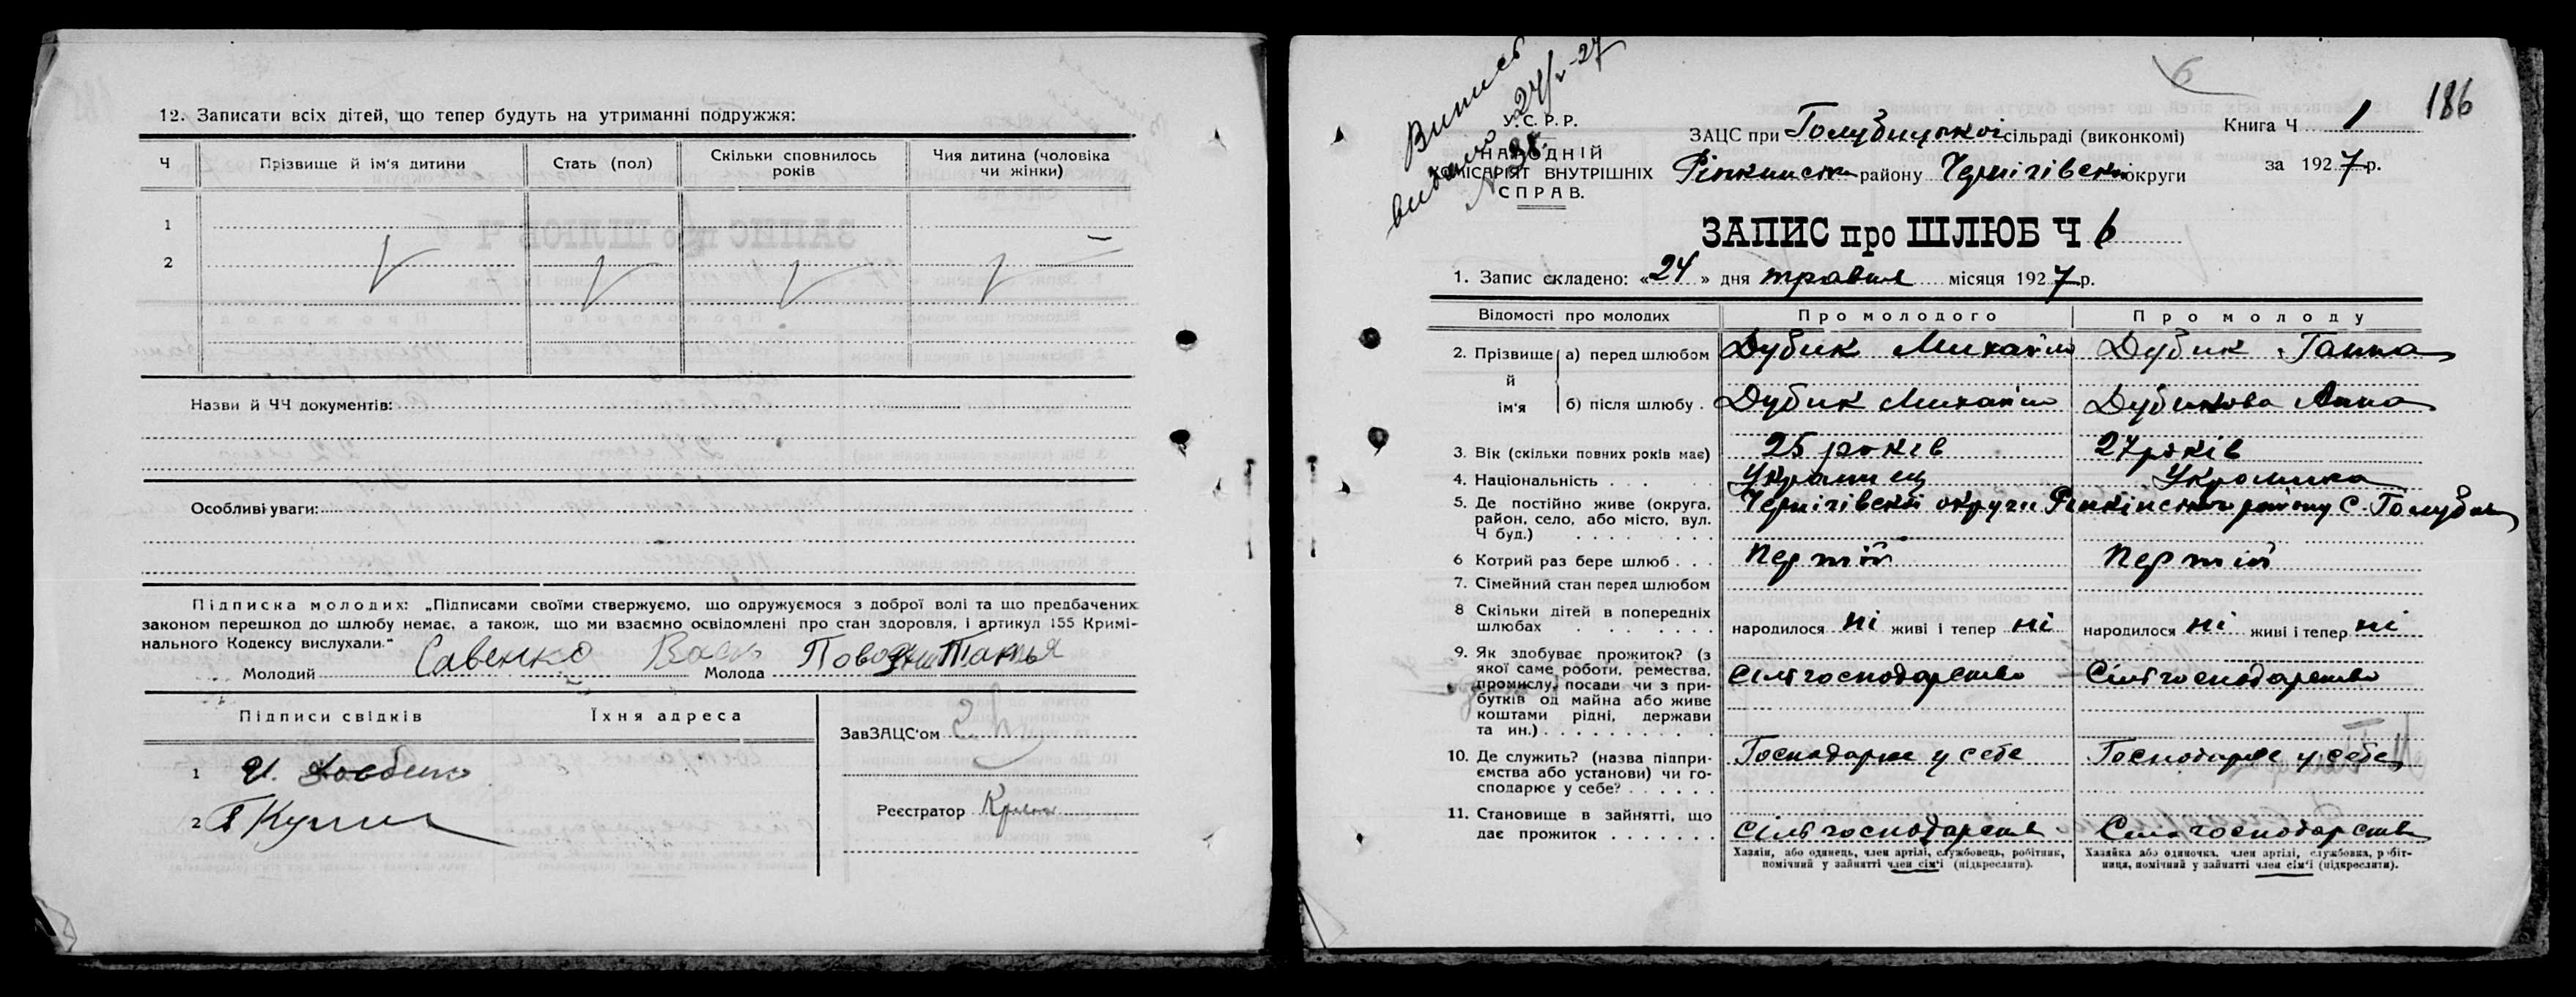 12. Записати всіх дітей, що тепер будуть на утриманні подружжя:
Ч Прізвище й ім'я дитини Стать (пол) Скільки сповнилось років Чия дитина (чоловіка чи жінки)
1
2
Назви й ЧЧ документів:
Особливі уваги:
Підписка молодих: „Підписами своїми ствержуємо, що одружуємося з доброї волі та що предбачених
законом перешкод до шлюбу немає, а також, що ми взаємно освідомлені про стан здоровля, і артикул 155 Кримі-
нального Кодексу вислухали."
Молодий Савенко Молода
Підписи свідків Їхня адреса
ЗавЗАЦС'ом
1 И.
2
Реєстратор
6
186
Випись
видано 24/V-27
У. С. Р. Р.
НАРОДНІЙ
КОМІСАРІЯТ ВНУТРІШНІХ
СПРАВ.
ЗАЦС при Голубицької сільраді (виконкомі)
Ріпкинськ району Чернігівськ округи
Книга Ч 1
за 1927 р.
ЗАПИС про ШЛЮБ Ч 6
1. Запис складено: «24» дня травня місяця 1927 р.
Відомості про молодих Про молодого Про молоду
2. Прізвище й ім'я а) перед шлюбом Дубик Михайло Дубик Ганна
б) після шлюбу . Дубик Михайло Дубикова Анна
3. Вік (скільки повних років має) 25 років 27 років
4. Національність . . . Українец Українка
5. Де постійно живе (округа, район, село, або місто, вул. Ч буд.) Чернігівської округи Ріпкінського району С.
6 Котрий раз бере шлюб . . . Перший Перший
7. Сімейний стан перед шлюбом
8 Скільки дітей в попередніх шлюбах народилося ні живі і тепер ні народилося ні живі і тепер ні
9. Як здобуває прожиток? (з якої саме роботи, ремества, промислу, посади чи з прибутків од майна або живе коштами рідні, держави та ин.) Сільгосподарство Сільгосподарство
10. Де служить? (назва підприємства або установи) чи господарює у себе? Господарює у себе Господарює у себе
11. Становище в зайнятті, що дає прожиток Сільгосподарство Сільгосподарство
Хазяїн, або одинець, член артілі, службовець, робітник, помічний у зайнятті член сім'ї (підкреслити).
Хазяйка або одиночка, член артілі, службовка, робітниця, помічний у зайнятті член сім'ї (підкреслити).